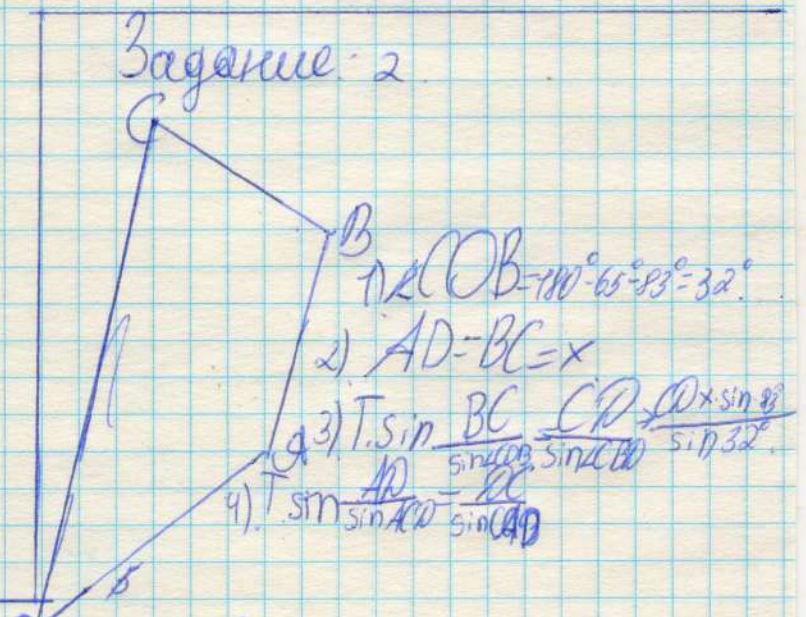 Задание: 2
C
B
1) ∠COB=180°-65°-83°=32°
2) AD=BC=x
A
3) T.sin BC/sin∠CDB = CD/sin∠CBD ⇒ CD x·sin 83°/sin32°.
4). T sin AD/sinACD = DC/sinCAD